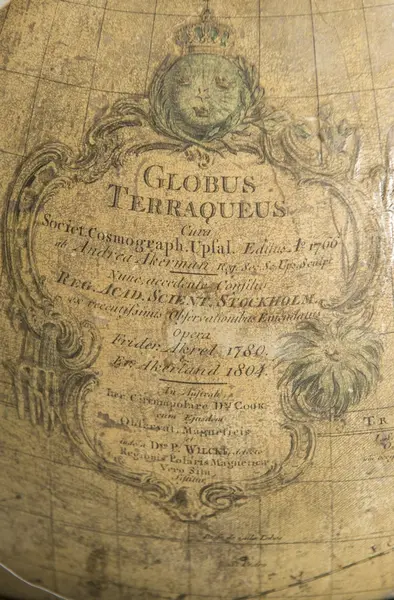 GLOBUS
TERRAQUEUS
Cura
Societ. Cosmograph. Upsal. Editus Aº 1766
ab Andrea Akerman Reg. Soc. Sc. Ups. Sculpt
Nunc accedente Consilio
REG. ACAD. SCIENT. STOCKHOLM.
ex recentissimis Observationibus Emendatus
Opera
Frider. Akrel, 1780.
Er. Akerland 1804.
In Australi
Iter Circumpolare Dni COOK
cum Ejusdem
Observat. Magneticis
et
Dni P. WILCKE
Regionis Polaris Magneticæ
Vero Sim
TR